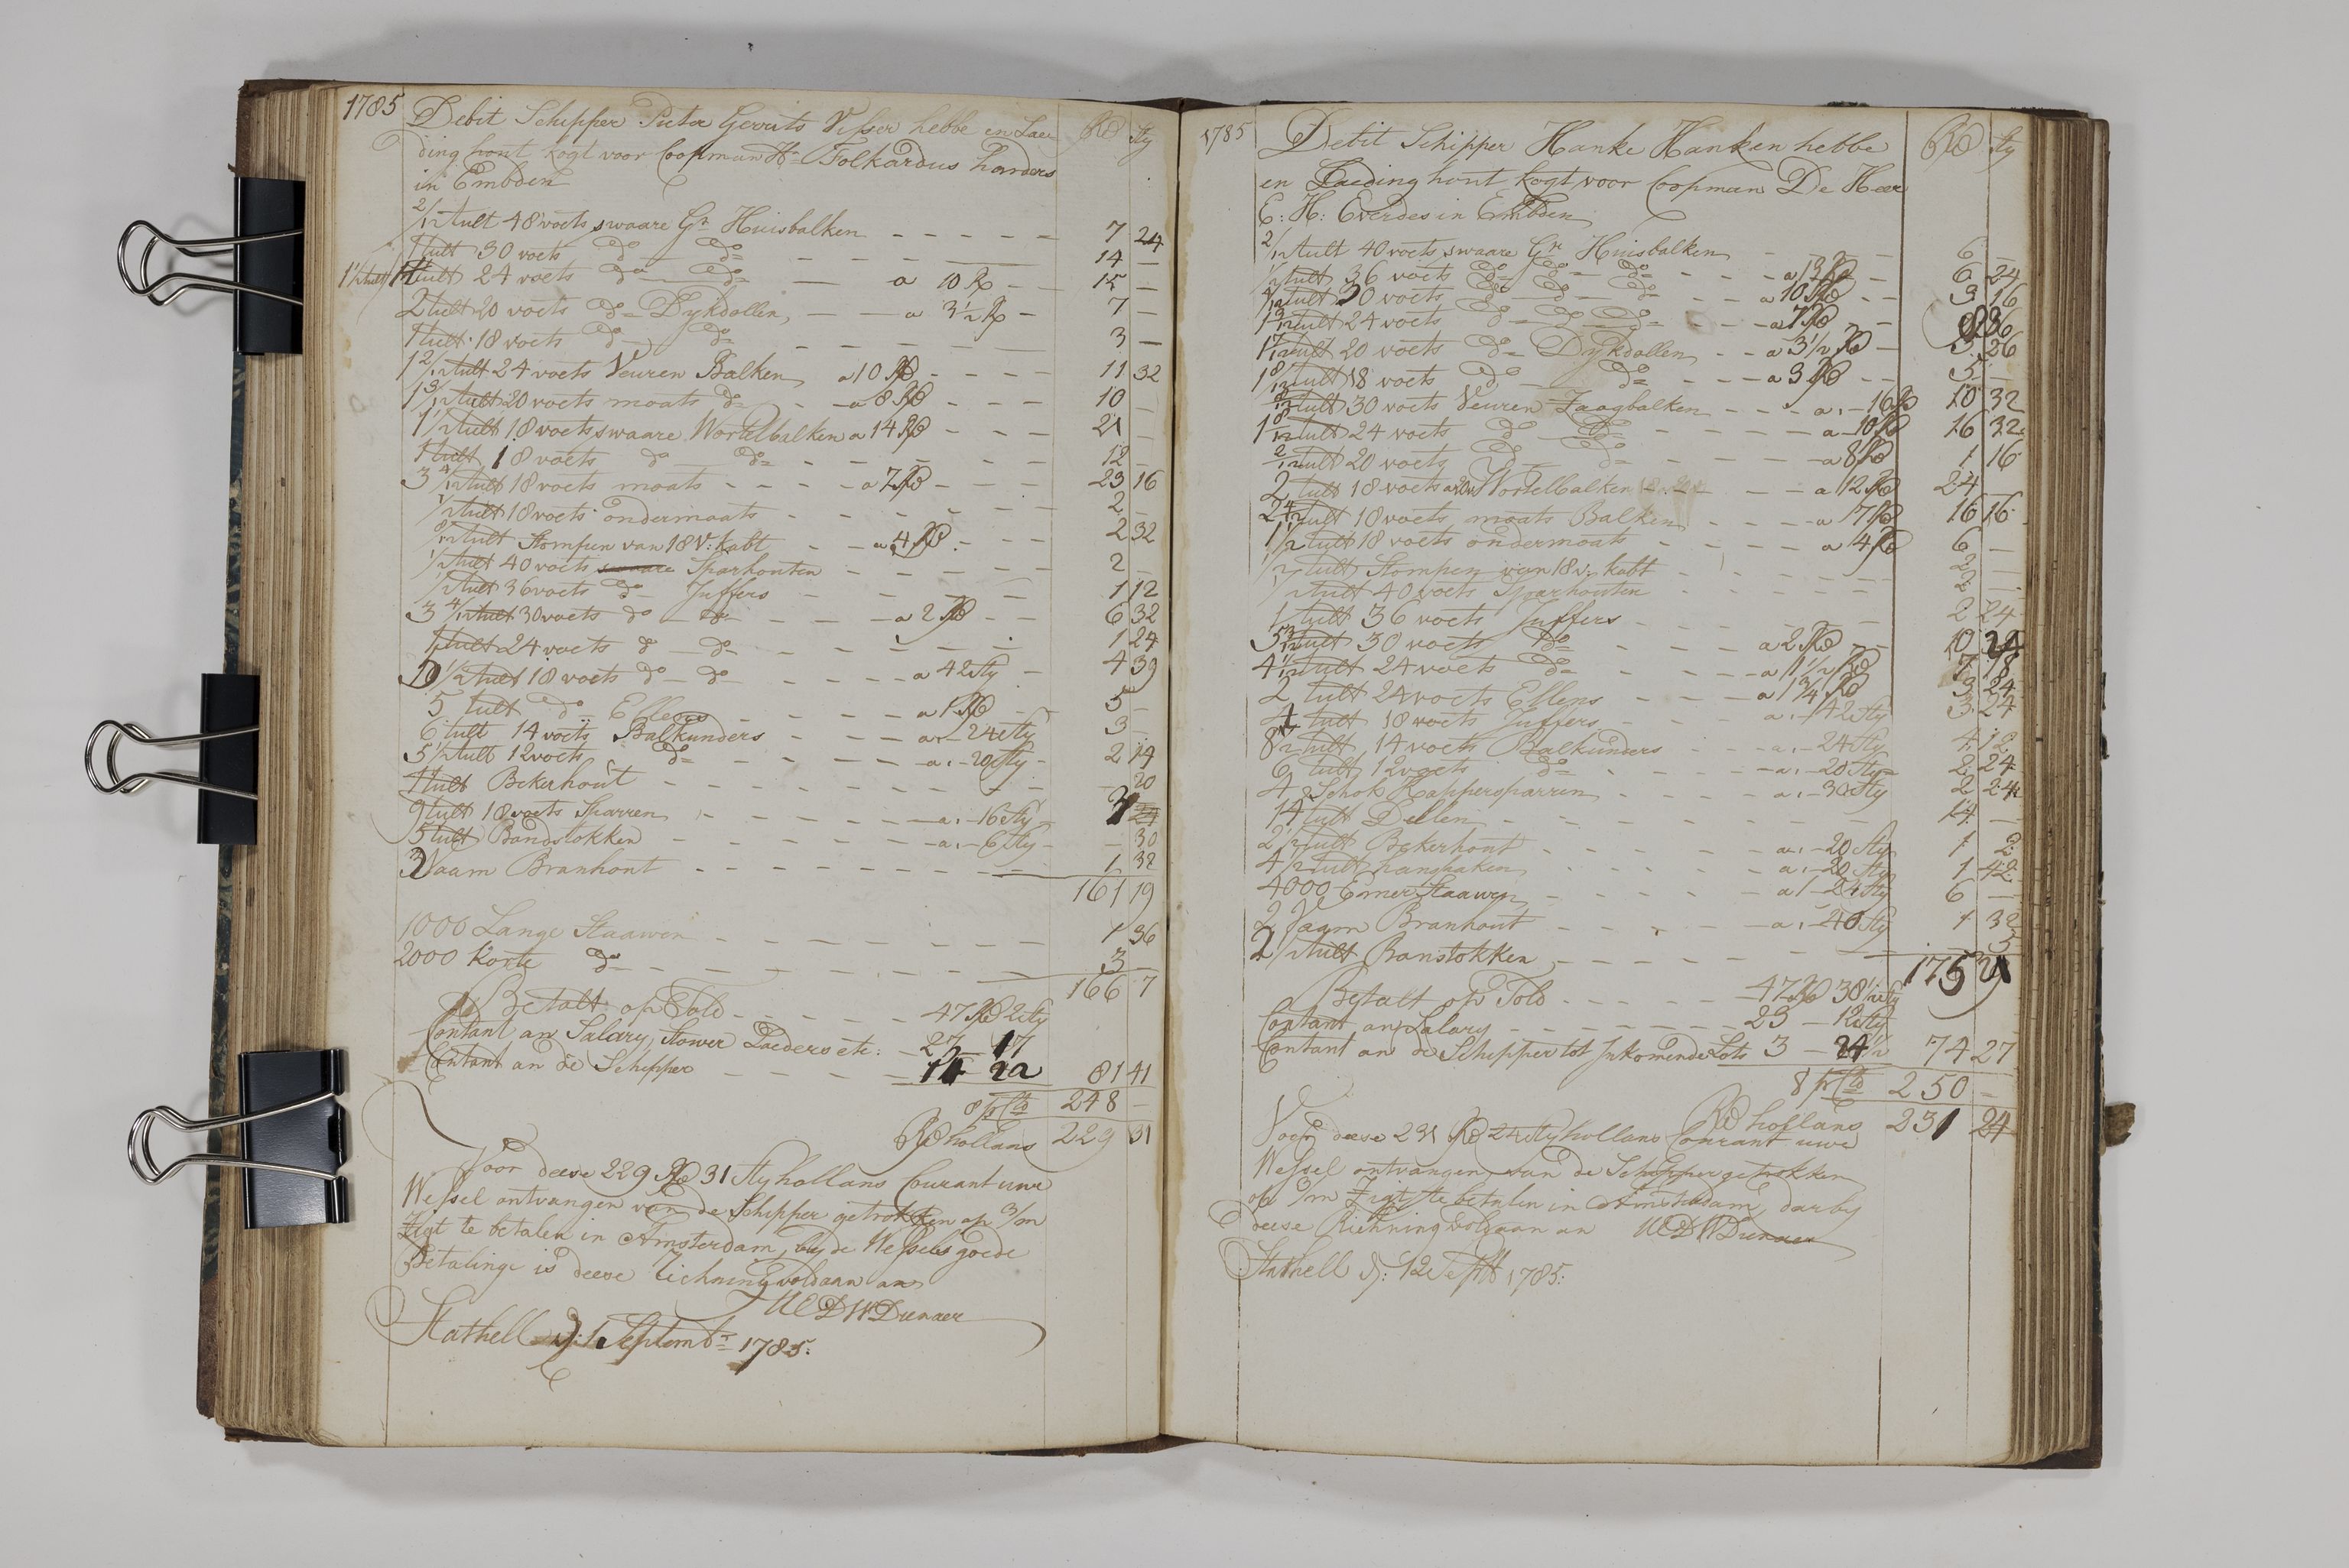 1785 Debit Schipper Pieter Gerrits Visser hebbe en Lae Rd Sty
ding hout kogt voor Coopman Hr Folkardus harders
in Embden
2/12 tult 48 voets swaare Gr Huisbalken 7 24
1 tult 30 voets do do 14 —
1 1/2 tult 24 voets do do a 10 Rd 15 —
2 tult 20 voets do Dykdollen a 3 1/2 Rd 7 —
1 tult 18 voets do do 3 —
1 2/12 tult 24 voets Veuren Balken a 10 Rd 11 32
1 3/12 tult 20 voets moats do a 8 Rd 10 —
1 1/2 tult 18 voets swaare Wortelbalken a 14 Rd 21 —
1 tult 18 voets do do 12 —
3 4/12 tult 18 voets moats a 7 Rd 23 16
1/2 tult 18 voets ondermoats 2 —
8/12 tult Stompen van 18 v: kabt a 4 Rd 2 32
1/2 tult 40 voets swaare Sparhouten 2 —
1/2 tult 36 voets do Juffers 1 12
3 4/12 tult 30 voets do do a 2 Rd 6 32
1 tult 24 voets do do 1 24
1/2 tult 18 voets do do a 42 Sty 4 39
5 tult do Ellens a 1 Rd 5 —
6 tult 14 voets Balkunders a — 24 Sty 3 —
5 1/2 tult 12 voets do a — 20 Sty 2 14
1 tult Bekerhout — 20
9 tult 18 voets Sparren a — 16 Sty 3
5 tult Bandstokken a — 6 Sty — 30
2 Vaam Branhout 1 32
161 19
1000 Lange Staawen 1 36
2000 Korte do 3 —
166 7
Betalt op Told 47 Rd 2 Sty
Contant an Salary, Stower Laeders etc: 27 17
Contant an de Schipper 81 41
8 pr Cto 248 —
Rd hollans 229 31
Voor deese 229 Rd 31 Sty hollans Courant une
Wessel ontvangen van de Schipper getrokken op 3/m
Zigt te betalen in Amsterdam, by de Wessels goede
Betalinge is deese Richning voldaan an
UEDWDienaer
Stathell d: 1 Septembr 1785:
1785 Debit Schipper Hanke Hanken hebbe Rd Sty
en Laeding hout kogt voor Coopman De Heer
E: H: Everdes in Embden
2/12 tult 40 voets swaare Gr Huisbalken 6 —
1/2 tult 36 voets do do do a 13 Rd 6 24
4/12 tult 30 voets do do do a 10 Rd 3 16
1 3/12 tult 24 voets do do do a 7 Rd
1 1/12 tult 20 voets do Dykdollen a 3 1/2 Rd 3 26
1 8/12 tult 18 voets do do a 3 Rd 5 —
8/12 tult 30 voets Veuren Zaagbalken a — 16 Rd 10 32
1 8/12 tult 24 voets do do a 10 Rd 16 32
2/12 tult 20 voets do do a 8 Rd 1 16
2 tult 18 voets Wortelbalken a 12 Rd 24 —
2 4/12 tult 18 voets moats Balken a 7 Rd 16 16
1 1/2 tult 18 voets ondermoats a 4 Rd 6 —
1/2 tult Stompen van 18 v: kabt 2 —
1/2 tult 40 voets Sparhouten 2 —
1 tult 36 voets Juffers 2 24
5 3/12 tult 30 voets do a 2 Rd 10 24
4 1/12 tult 24 voets do a 1 1/2 Rd 7 18
2 tult 24 voets Ellens a 1 3/4 Rd 3 24
4 tult 18 voets Juffers a — 42 Sty 3 24
8 1/2 tult 14 voets Balkunders a — 24 Sty 4 12
6 tult 12 voets do a — 20 Sty 2 24
4 Schok Kappersparren a — 30 Sty 2 24
14 tult Dellen 14 —
2 1/2 tult Bekerhout a — 20 Sty 1 2
4 1/2 tult hanshaken a — 20 Sty 1 42
4000 Emer Staawen a 1 — 24 Sty 6 —
2 Vaam Branhout a — 40 Sty 1 32
2 1/2 tult Banstokken 5
175 21
Betalt op Told 47 Rd 38 1/2 Sty
Contant an Salary 23 — 12 Sty
Contant an de Schipper tot Inkomende Lots 3 — 24 1/2 74 27
8 pr Cto 250 —
Rd hollans 231 24
Voor deese 231 Rd 24 Sty hollans Courant uwe
Wessel ontvangen van de Schipper getrokken
op 3/m Zigt te betalen in Amsterdam, dar by
deese Richning voldaan an UEDWDienaer
Stathell d: 12 Septb 1785: